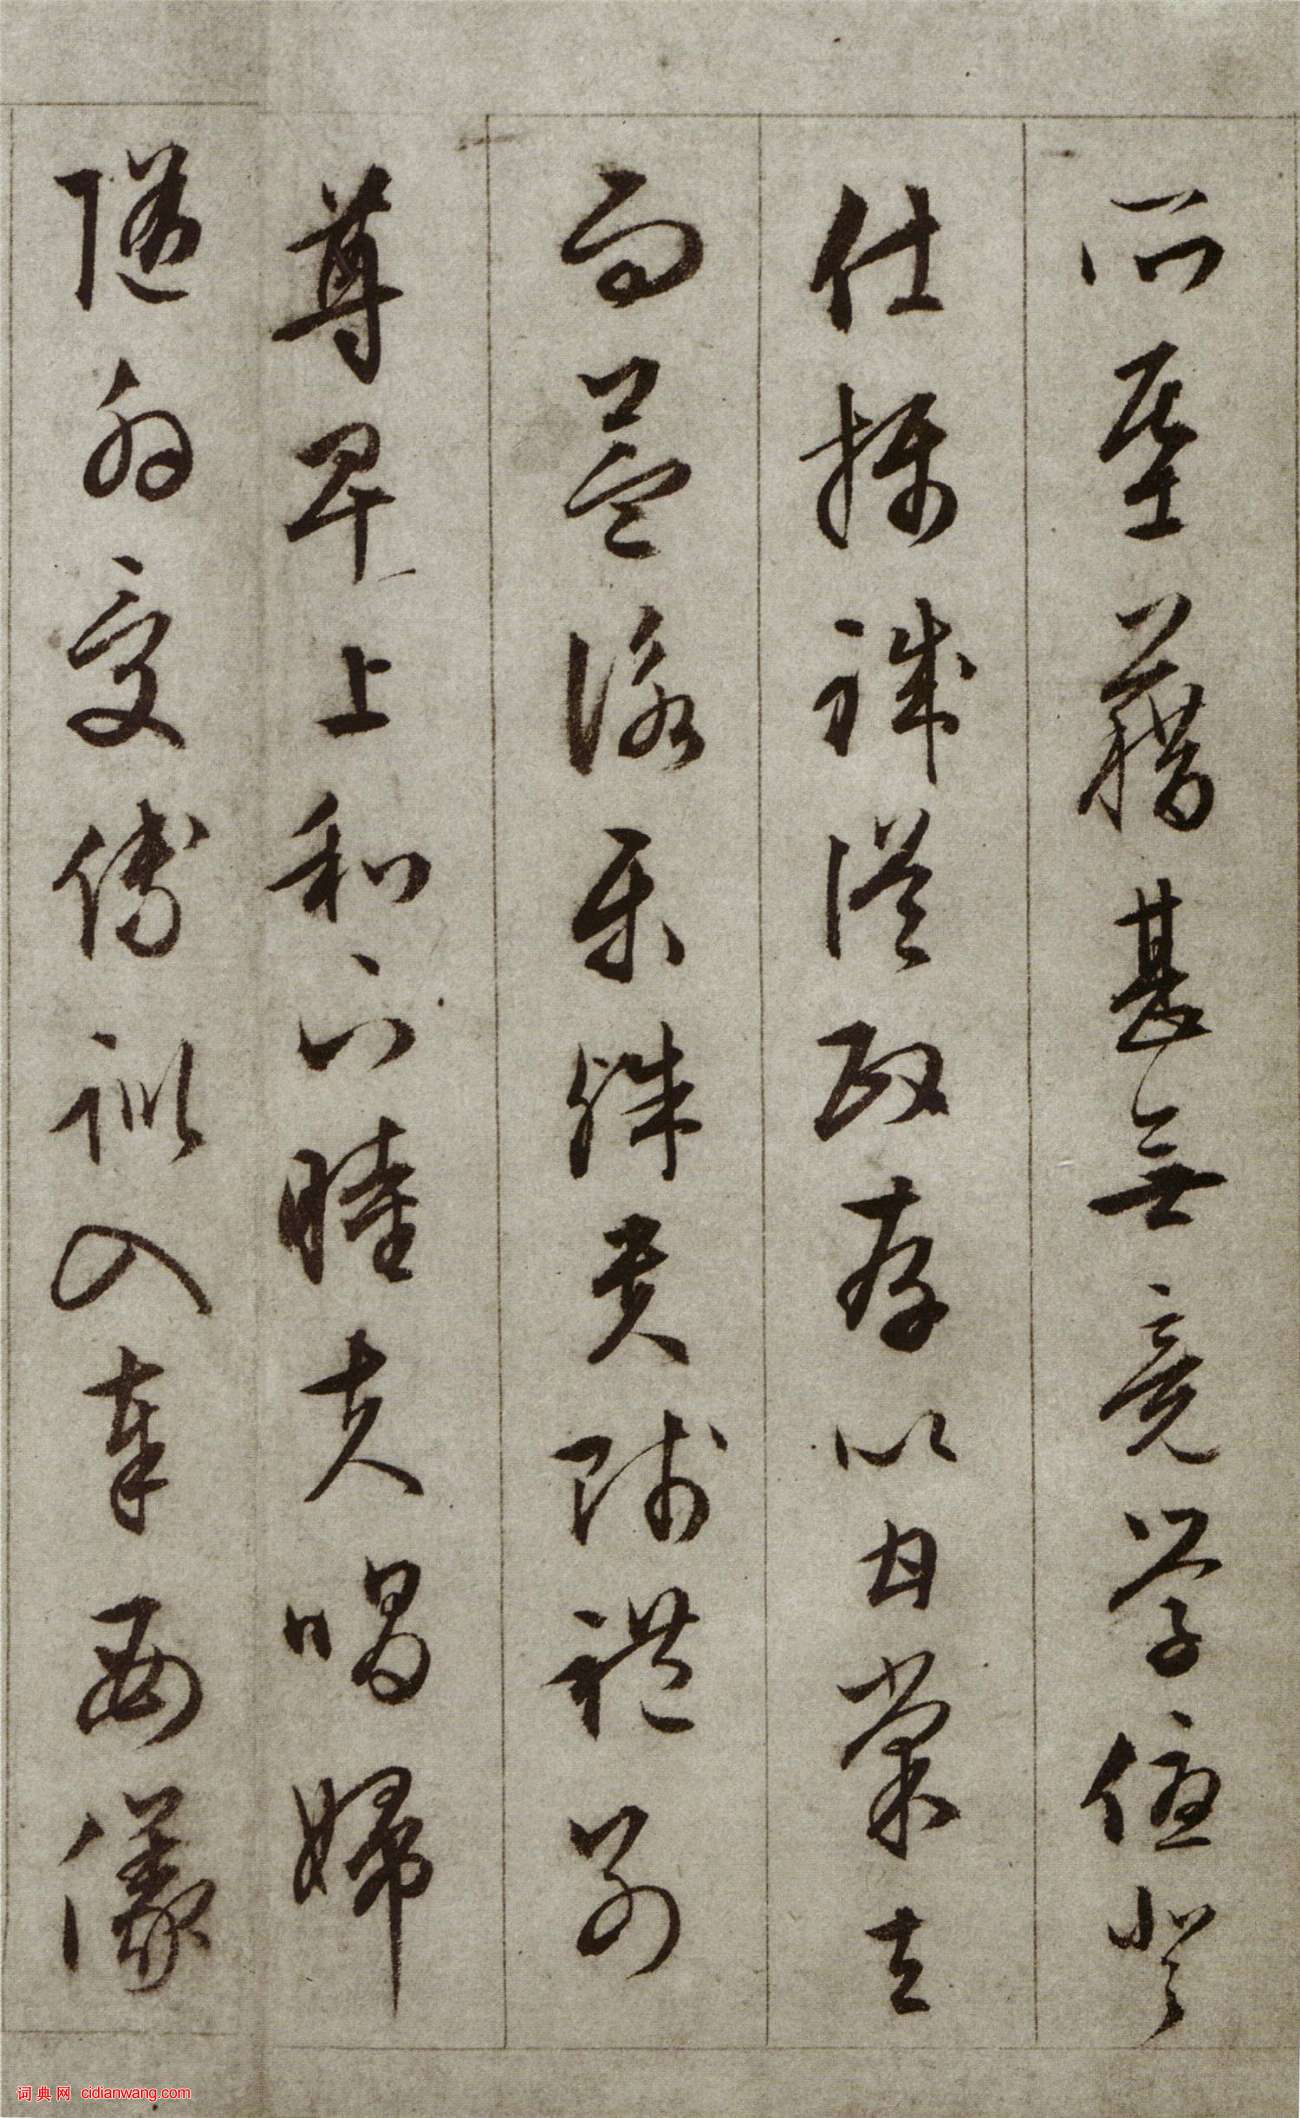 所基藉甚無竟學優登
仕攝職從政存以甘棠去
而益詠樂殊貴賤禮別
尊卑上和下睦夫唱婦
隨外受傅訓入奉母儀
词典网 cidianwang.com